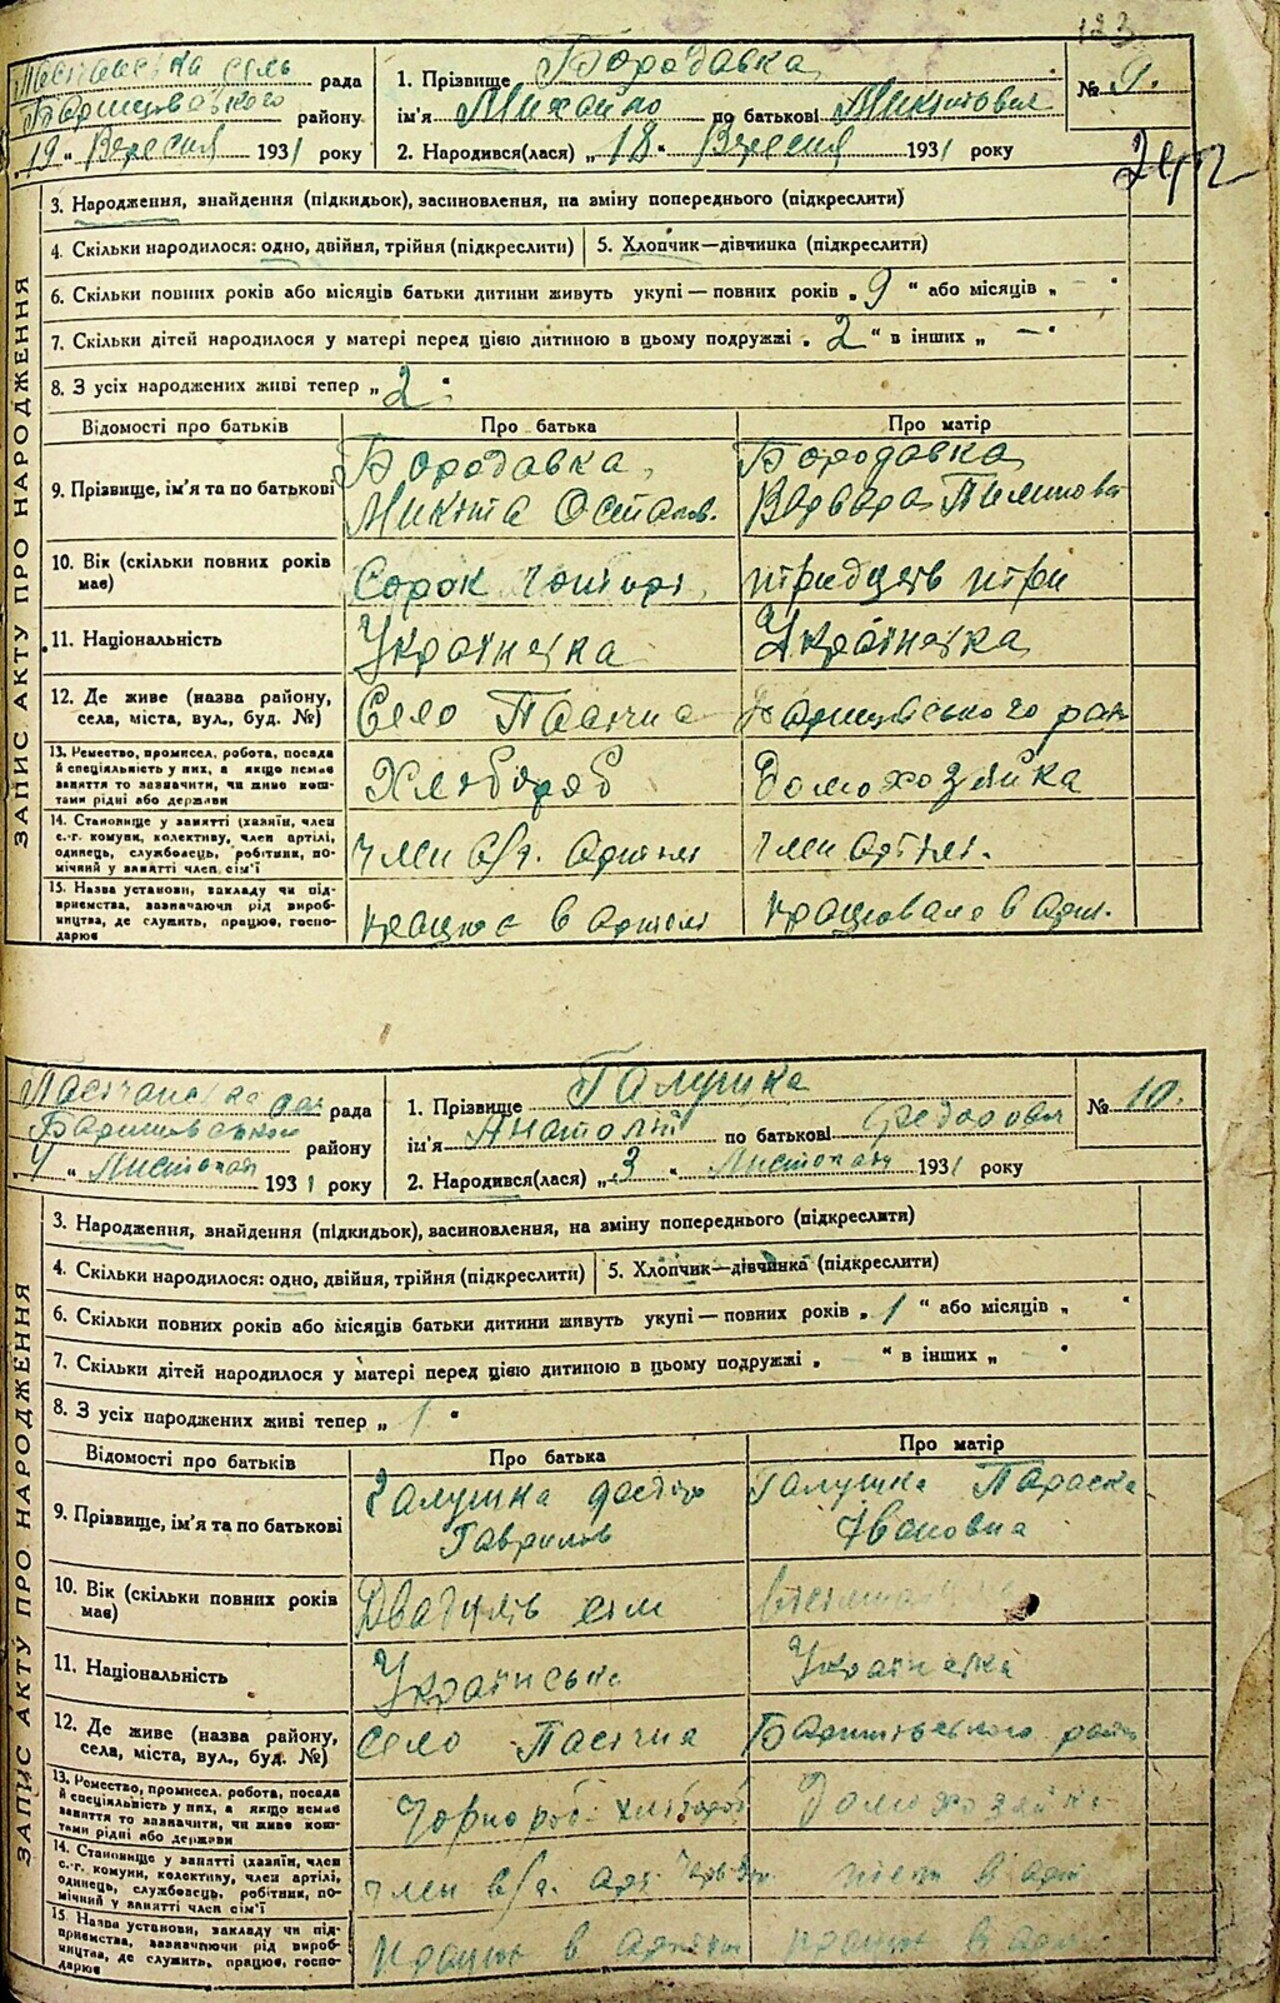 123
рада
району
„19“ Вересня 1931 року
1. Прізвище Бородавка
ім'я Михайло по батькові Микитович
2. Народився(лася) „18“ Вересня 1931 року
№ 9.
ЗАПИС АКТУ ПРО НАРОДЖЕННЯ
3. Народження, знайдення (підкидьок), засиновлення, на зміну попереднього (підкреслити)
4. Скільки народилося: одно, двійня, трійня (підкреслити) 5. Хлопчик—дівчинка (підкреслити)
6. Скільки повних років або місяців батьки дитини живуть укупі — повних років „9“ або місяців „—“
7. Скільки дітей народилося у матері перед цією дитиною в цьому подружжі „2“ в інших „—“
8. З усіх народжених живі тепер „2“
Відомості про батьків Про батька Про матір
9. Прізвище, ім'я та по батькові
Бородавка Бородавка
Микита Остапов. Варвара
10. Вік (скільки повних років
має)
Сорок чотирі тридцять три
11. Національність Українська Українська
12. Де живе (назва району,
села, міста, вул., буд. №)
Село Пасічна Баришівського рай
13. Ремество, промисел, робота, посада
й спеціяльність у них, а якщо немає
заняття то зазначити, чи живе кош-
тами рідні або держави
Хлібороб Домохозяйка
14. Становище у занятті (хазяїн, член
с.-г. комуни, колективу, член артілі,
одинець, службовець, робітник, по-
мічний у занятті член сім'ї
член с/г. артілі член артілі.
15. Назва установи, закладу чи під-
приємства, зазначаючи рід вироб-
ництва, де служить, працює, госпо-
дарює
працює в артілі працювала в арт.
рада
Баришівського району
„4“ Листопада 1931 року
1. Прізвище Галушка
ім'я Анатолій по батькові Федорович
2. Народився(лася) „3“ Листопада 1931 року
№ 10.
ЗАПИС АКТУ ПРО НАРОДЖЕННЯ
3. Народження, знайдення (підкидьок), засиновлення, на зміну попереднього (підкреслити)
4. Скільки народилося: одно, двійня, трійня (підкреслити) 5. Хлопчик—дівчинка (підкреслити)
6. Скільки повних років або місяців батьки дитини живуть укупі — повних років „1“ або місяців „ “
7. Скільки дітей народилося у матері перед цією дитиною в цьому подружжі „ “ в інших „ “
8. З усіх народжених живі тепер „1“
Відомості про батьків Про батька Про матір
9. Прізвище, ім'я та по батькові
Галушка Галушка Параска
Гаврилов Івановна
10. Вік (скільки повних років
має)
Двадцять сім
11. Національність Українська Українська
12. Де живе (назва району,
села, міста, вул., буд. №)
село Пасічна Баришівського район
13. Ремество, промисел, робота, посада
й спеціяльність у них, а якщо немає
заняття то зазначити, чи живе кош-
тами рідні або держави
Чорнороб. хлібороб Домохозяйка
14. Становище у занятті (хазяїн, член
с.-г. комуни, колективу, член артілі,
одинець, службовець, робітник, по-
мічний у занятті член сім'ї
член с/г. арт. член в арт
15. Назва установи, закладу чи під-
приємства, зазначаючи рід вироб-
ництва, де служить, працює, госпо-
дарює
працює в артілі працює в арт.